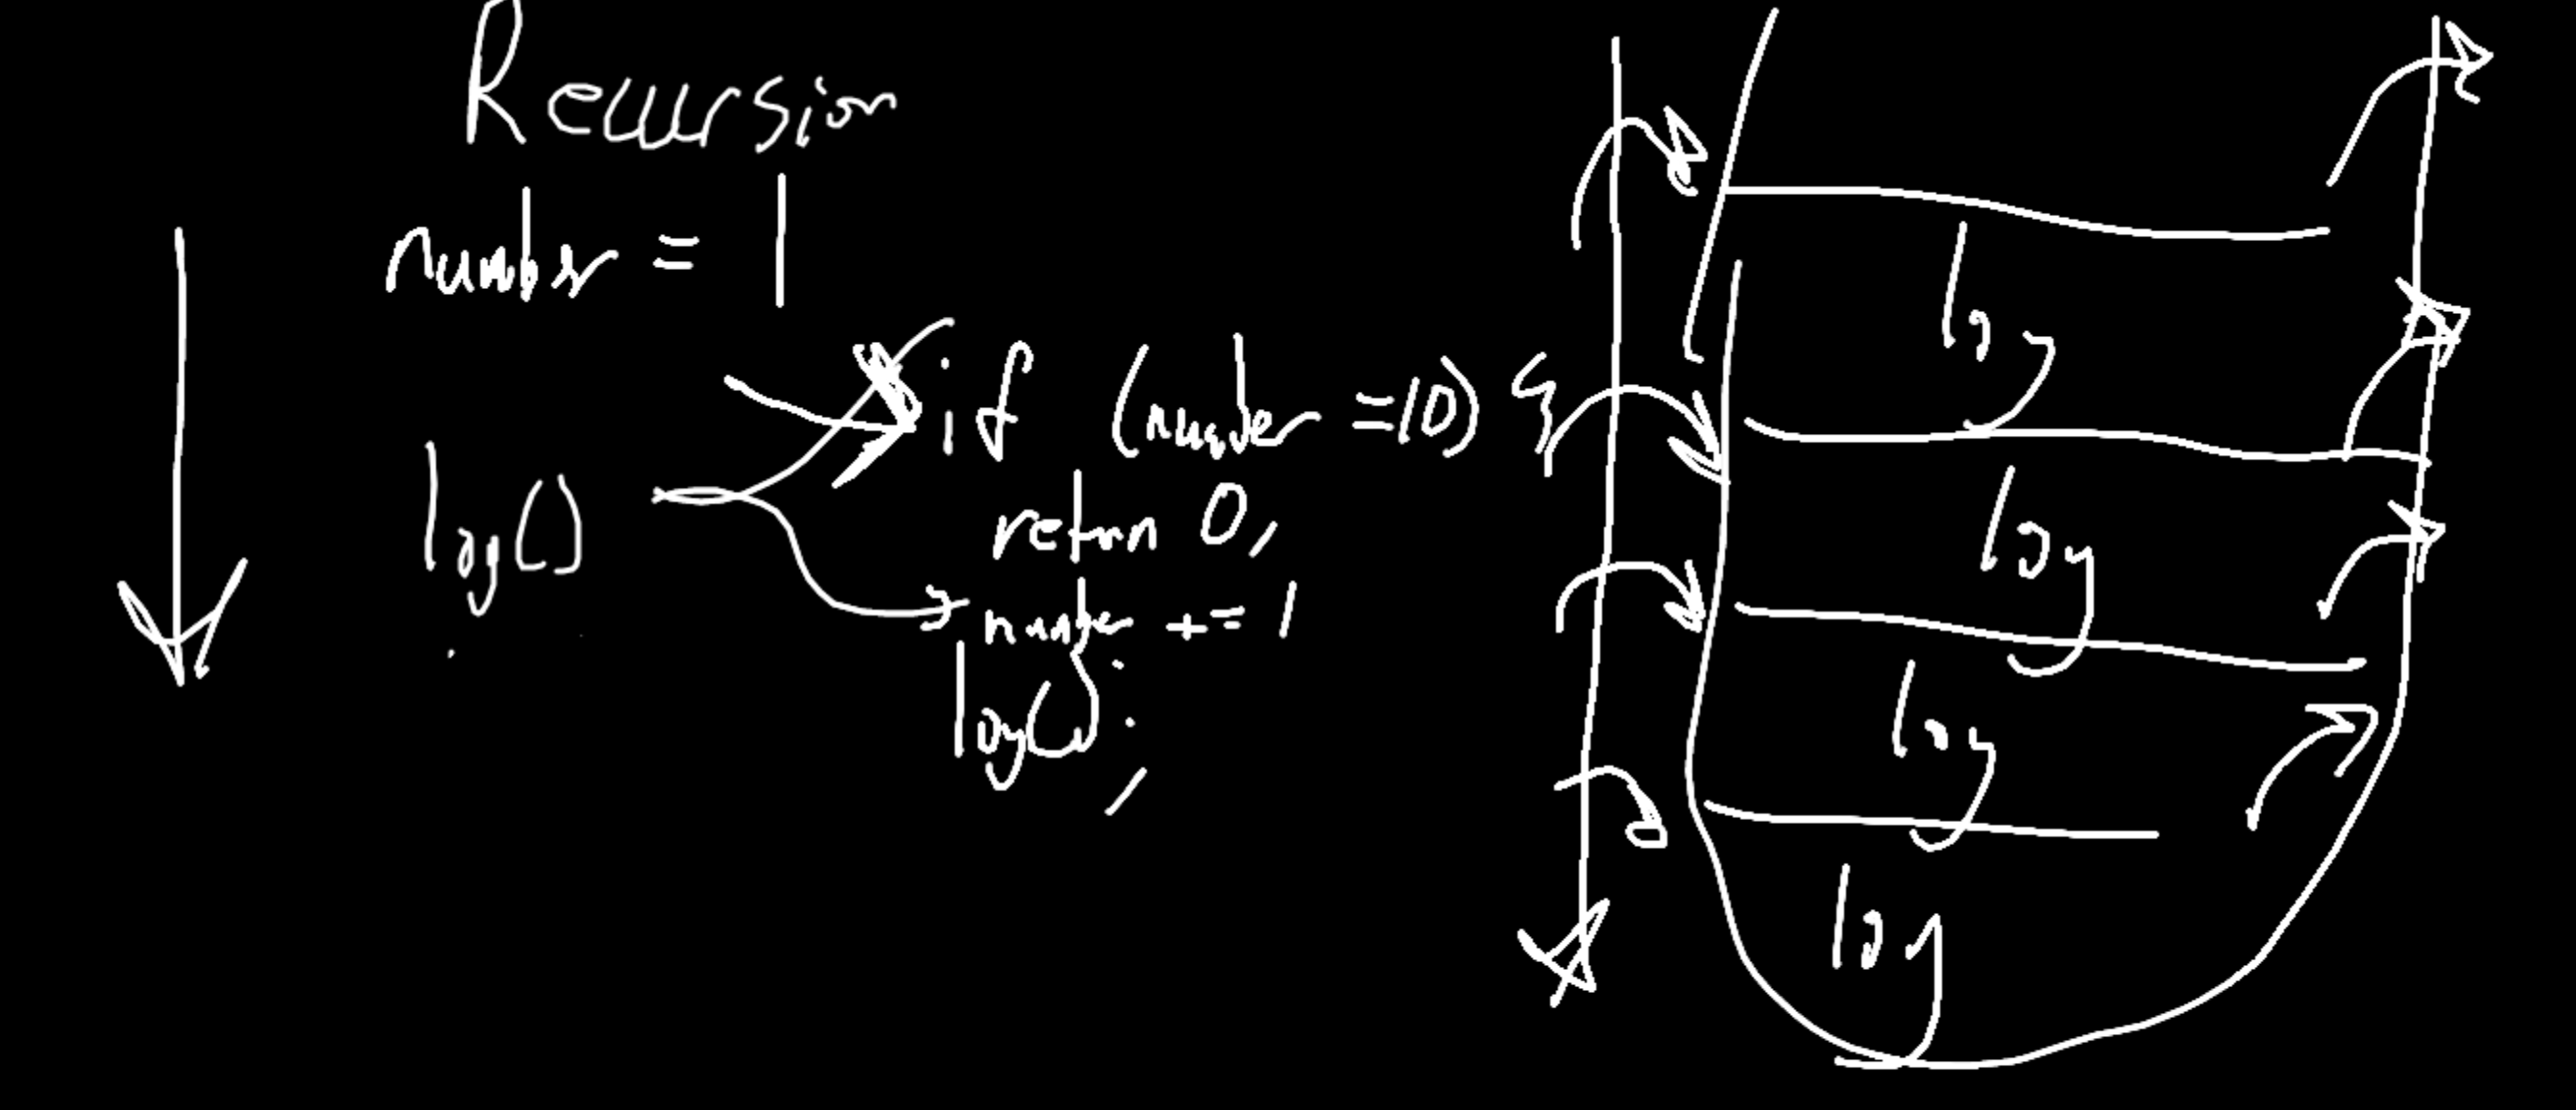 Recursion
number = 1
if (number =10) {
log()
return 0,
number += 1
log();
log
log
log
log